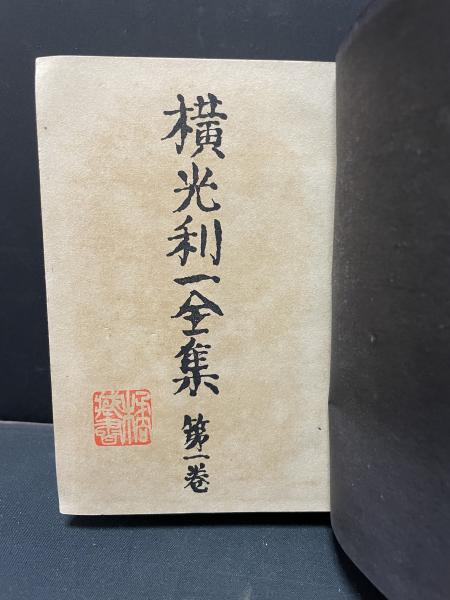 横光利一全集 第一巻
蔵書